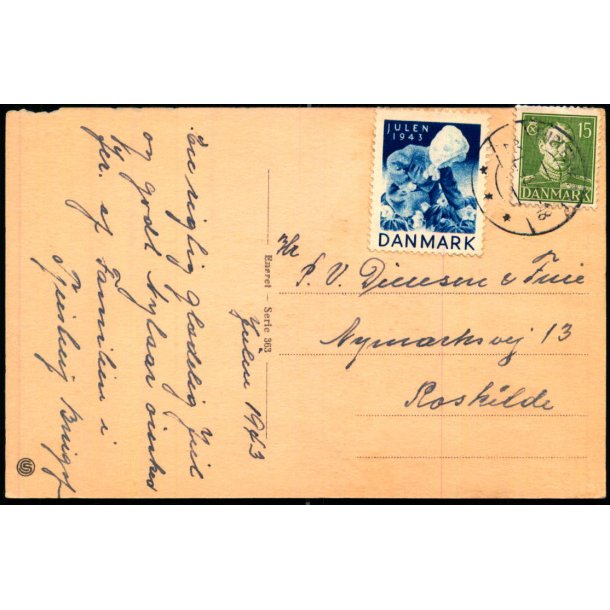 JULEN
1943
DANMARK
15
DANMARK
Hr
P. V. Diensen & Frue
Nymarksvej 13
Roskilde
Eneret — Serie 363
Julen 1943
En rigtig Glædelig Jul
og godt Nytaar ønskes
fra Familien i